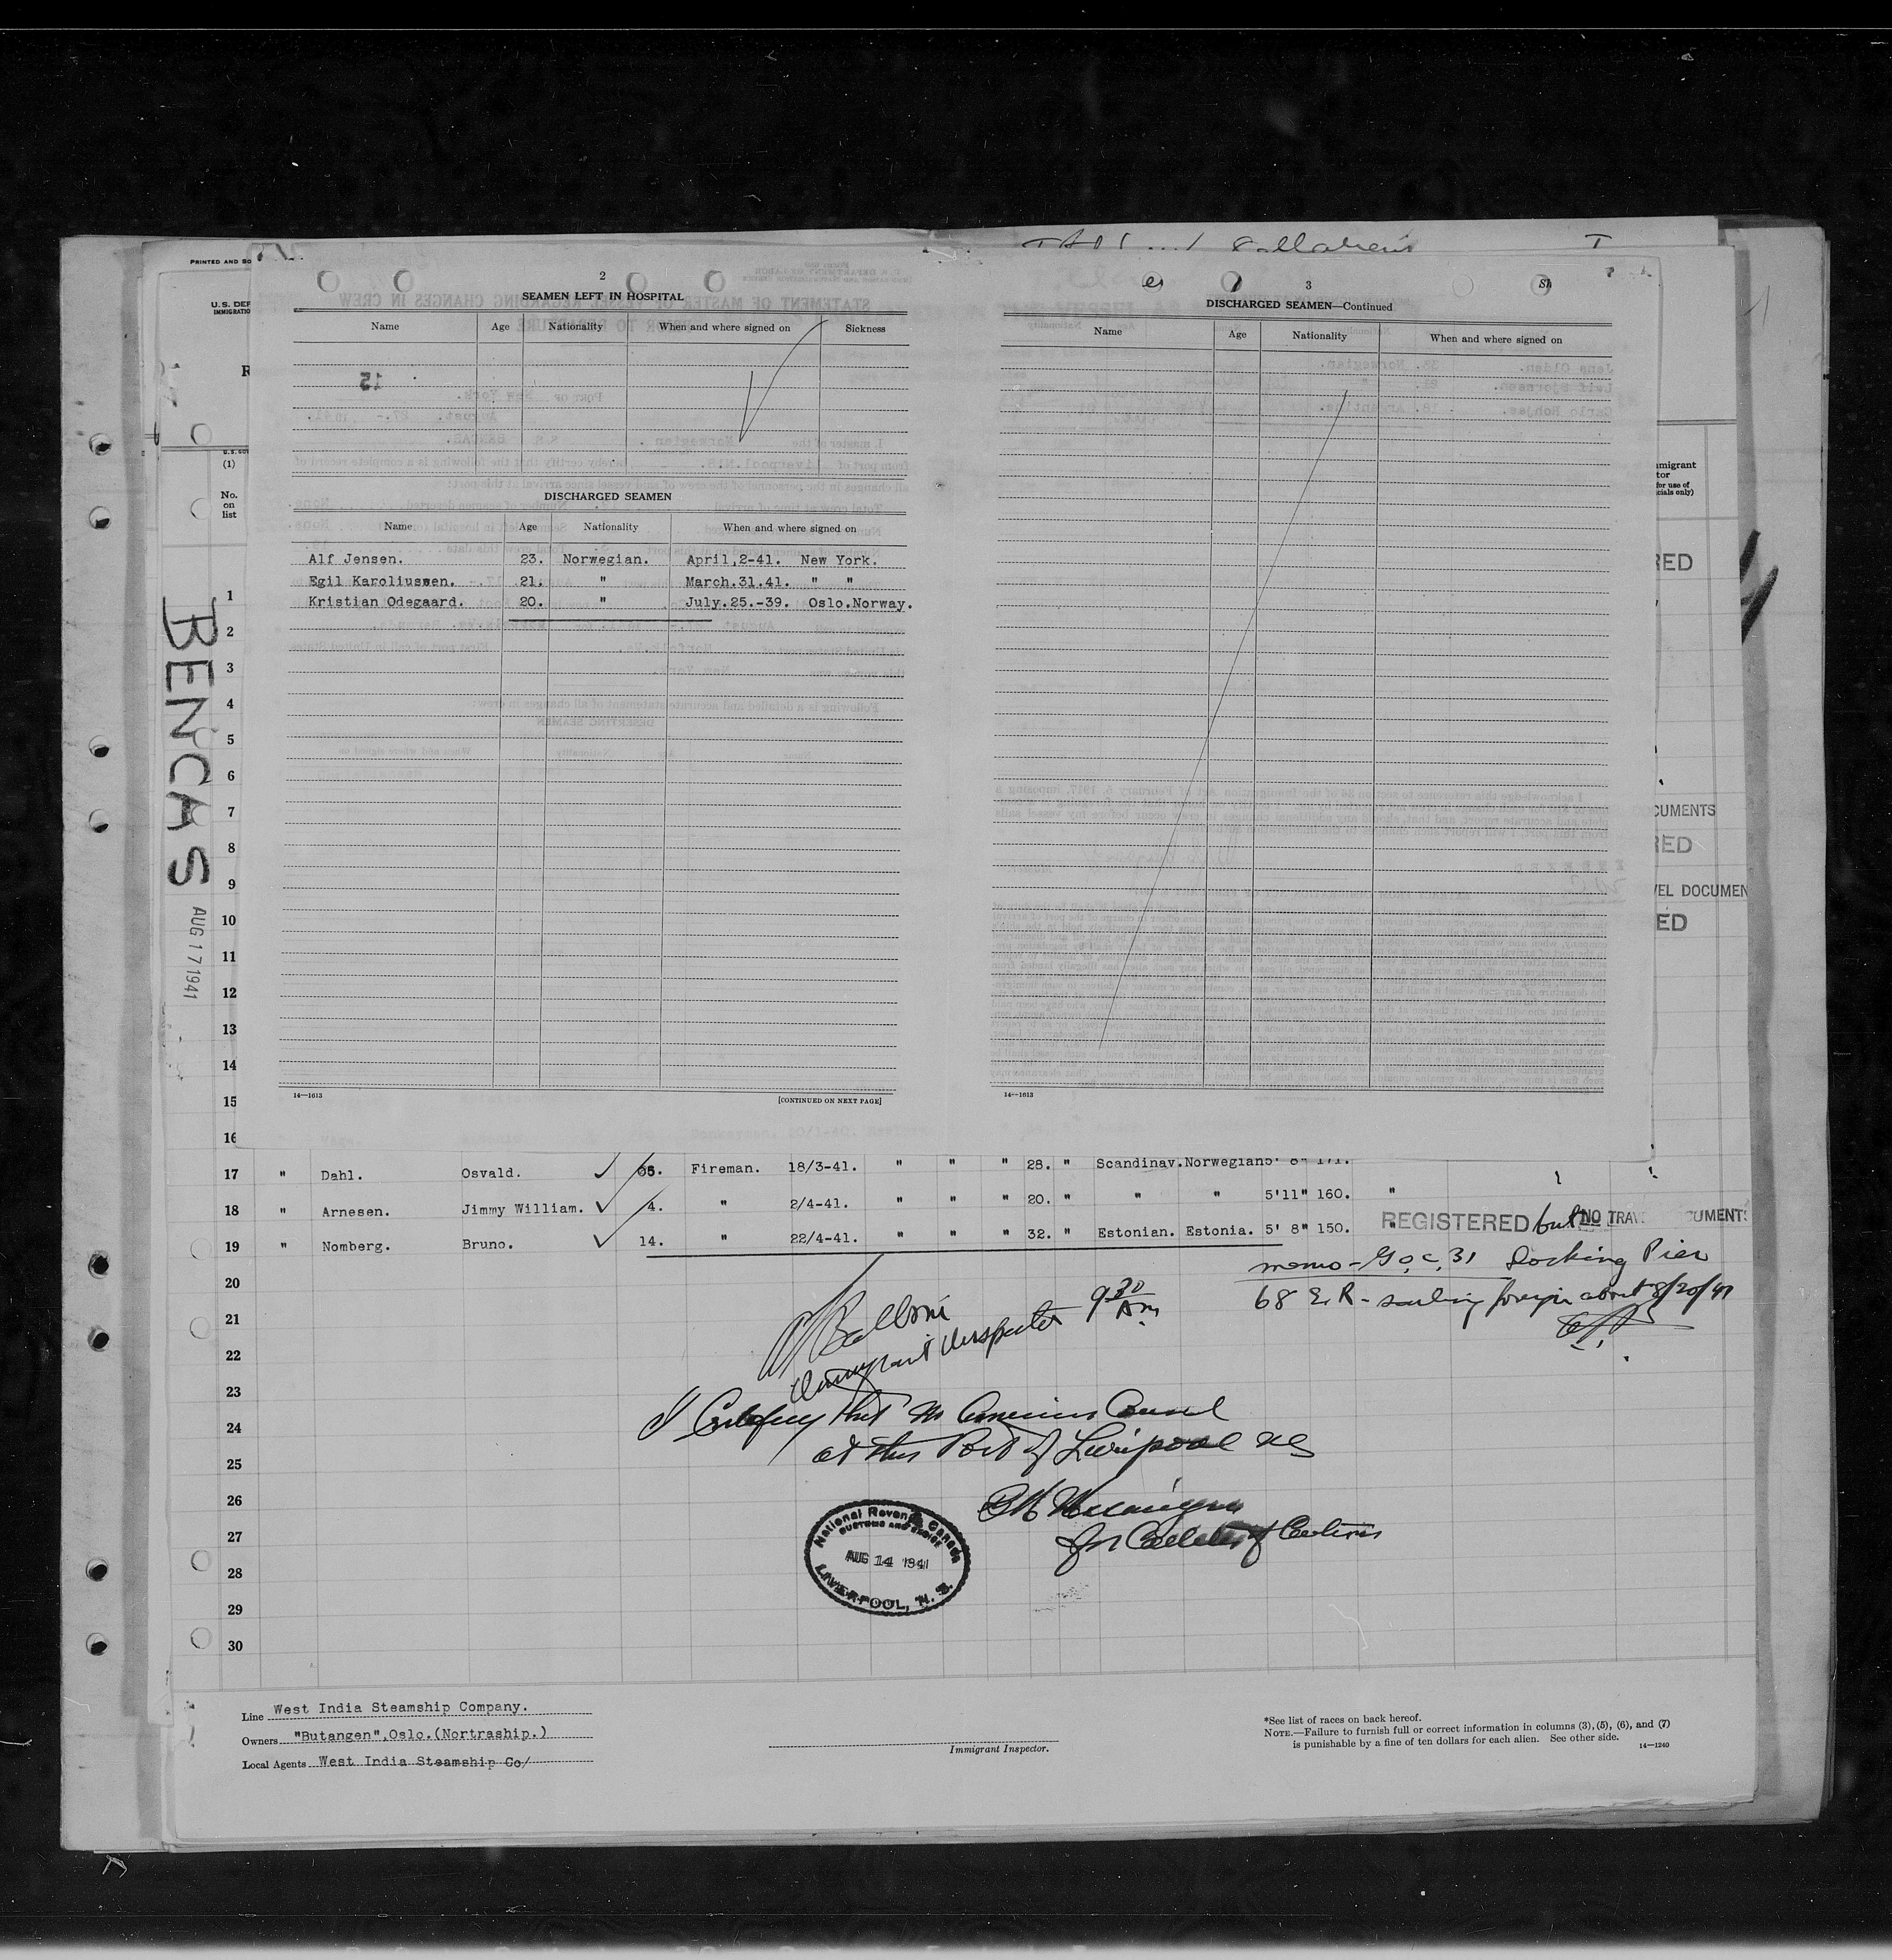 PRINTED AND SO
U.S. DEF
IMMIGRATIO
R
(1)
No.
on
list
BENCAS
AUG 17 1941
2
SEAMEN LEFT IN HOSPITAL
Name Age Nationality When and where signed on Sickness
DISCHARGED SEAMEN
Name Age Nationality When and where signed on
Alf Jensen. 23. Norwegian. April,2-41. New York.
Egil Karoliussen. 21. " March.31.41. " "
Kristian Odegaard. 20. " July.25.-39. Oslo.Norway.
14—1613
[CONTINUED ON NEXT PAGE]
3
DISCHARGED SEAMEN—Continued
Name Age Nationality When and where signed on
14—1613
migrant
tor
for use of
cials only)
RED
CUMENTS
RED
VEL DOCUMEN
ED
1
2
3
4
5
6
7
8
9
10
11
12
13
14
15
16
17 " Dahl. Osvald. Fireman. 18/3-41. " " " 28. " Scandinav. Norwegian 5' 8" 171.
18 " Arnesen. Jimmy William. 4. " 2/4-41. " " " 20. " " " 5'11" 160. "
19 " Nomberg. Bruno. 14. " 22/4-41. " " " 32. " Estonian. Estonia. 5' 8" 150. "
REGISTERED but NO TRAV UMENT
20
21
22
23
24
25
26
27
28
29
30
memo - G.O.C. 31 Docking Pier
68 E.R - sailing foreign about 8/20/41
9 30 Am
Immigrant Inspector
I Certify that no American Consul
at this Port of Liverpool NS
for Collector of Customs
National Revenue Canada
CUSTOMS AND EXCISE
AUG 14 1941
LIVERPOOL, N. S.
Line West India Steamship Company.
Owners "Butangen",Oslo.(Nortraship.)
Local Agents West India Steamship Co/
Immigrant Inspector.
*See list of races on back hereof.
NOTE.—Failure to furnish full or correct information in columns (3), (5), (6), and (7)
is punishable by a fine of ten dollars for each alien. See other side.
14—1240